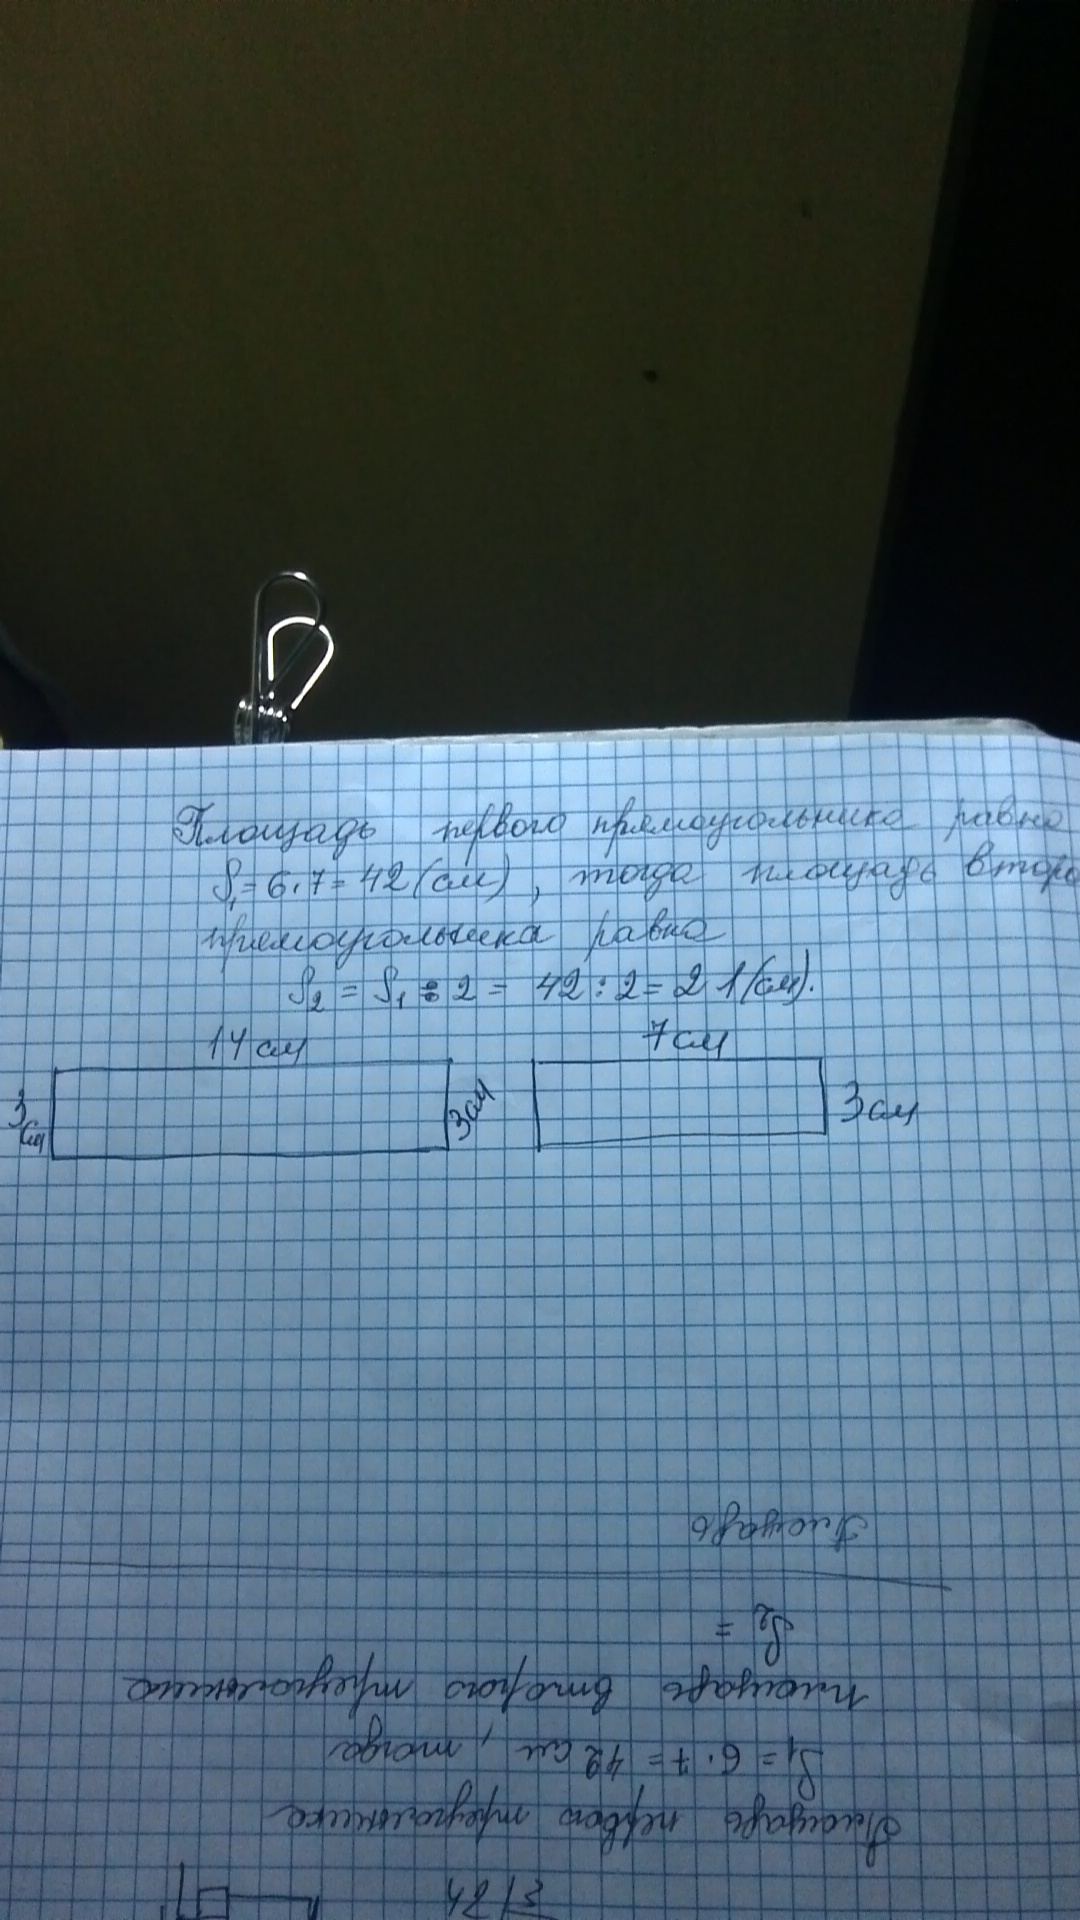 Площадь первого прямоугольника равна
S₁ = 6·7 = 42 (см), тогда площадь второ
прямоугольника равна
S₂ = S₁ : 2 = 42 : 2 = 21 (см).
14 см
7 см
3 см
3 см
3 см
Площадь первого треугольника
S₁ = 6·7 = 42 см, тогда
площадь второго треугольника
S₂ =
Площадь